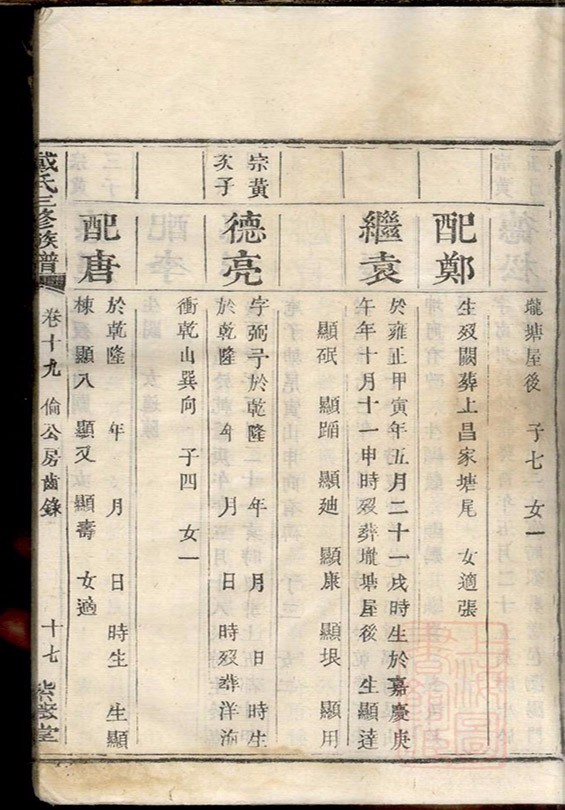 壠塘屋後 子七 女一
配鄭
生歿闕葬上昌家塘尾 女適張
繼袁
於雍正甲寅年五月二十一戌時生於嘉慶庚
午年十月十一申時歿葬壠塘屋後 生顯達
顯珉 顯踊 顯廸 顯康 顯垠 顯用
宗黃
次子
德亮
字弼 於乾隆 年 月 日 時生
於乾隆 年 月 日 時歿葬洋
衝乾山巽向 子四 女一
配唐
於乾隆 年 月 日 時生 生顯
棟 顯八 顯又 顯壽 女適
戴氏三修族譜 卷十九 倫公房齒錄 十七 紫 堂